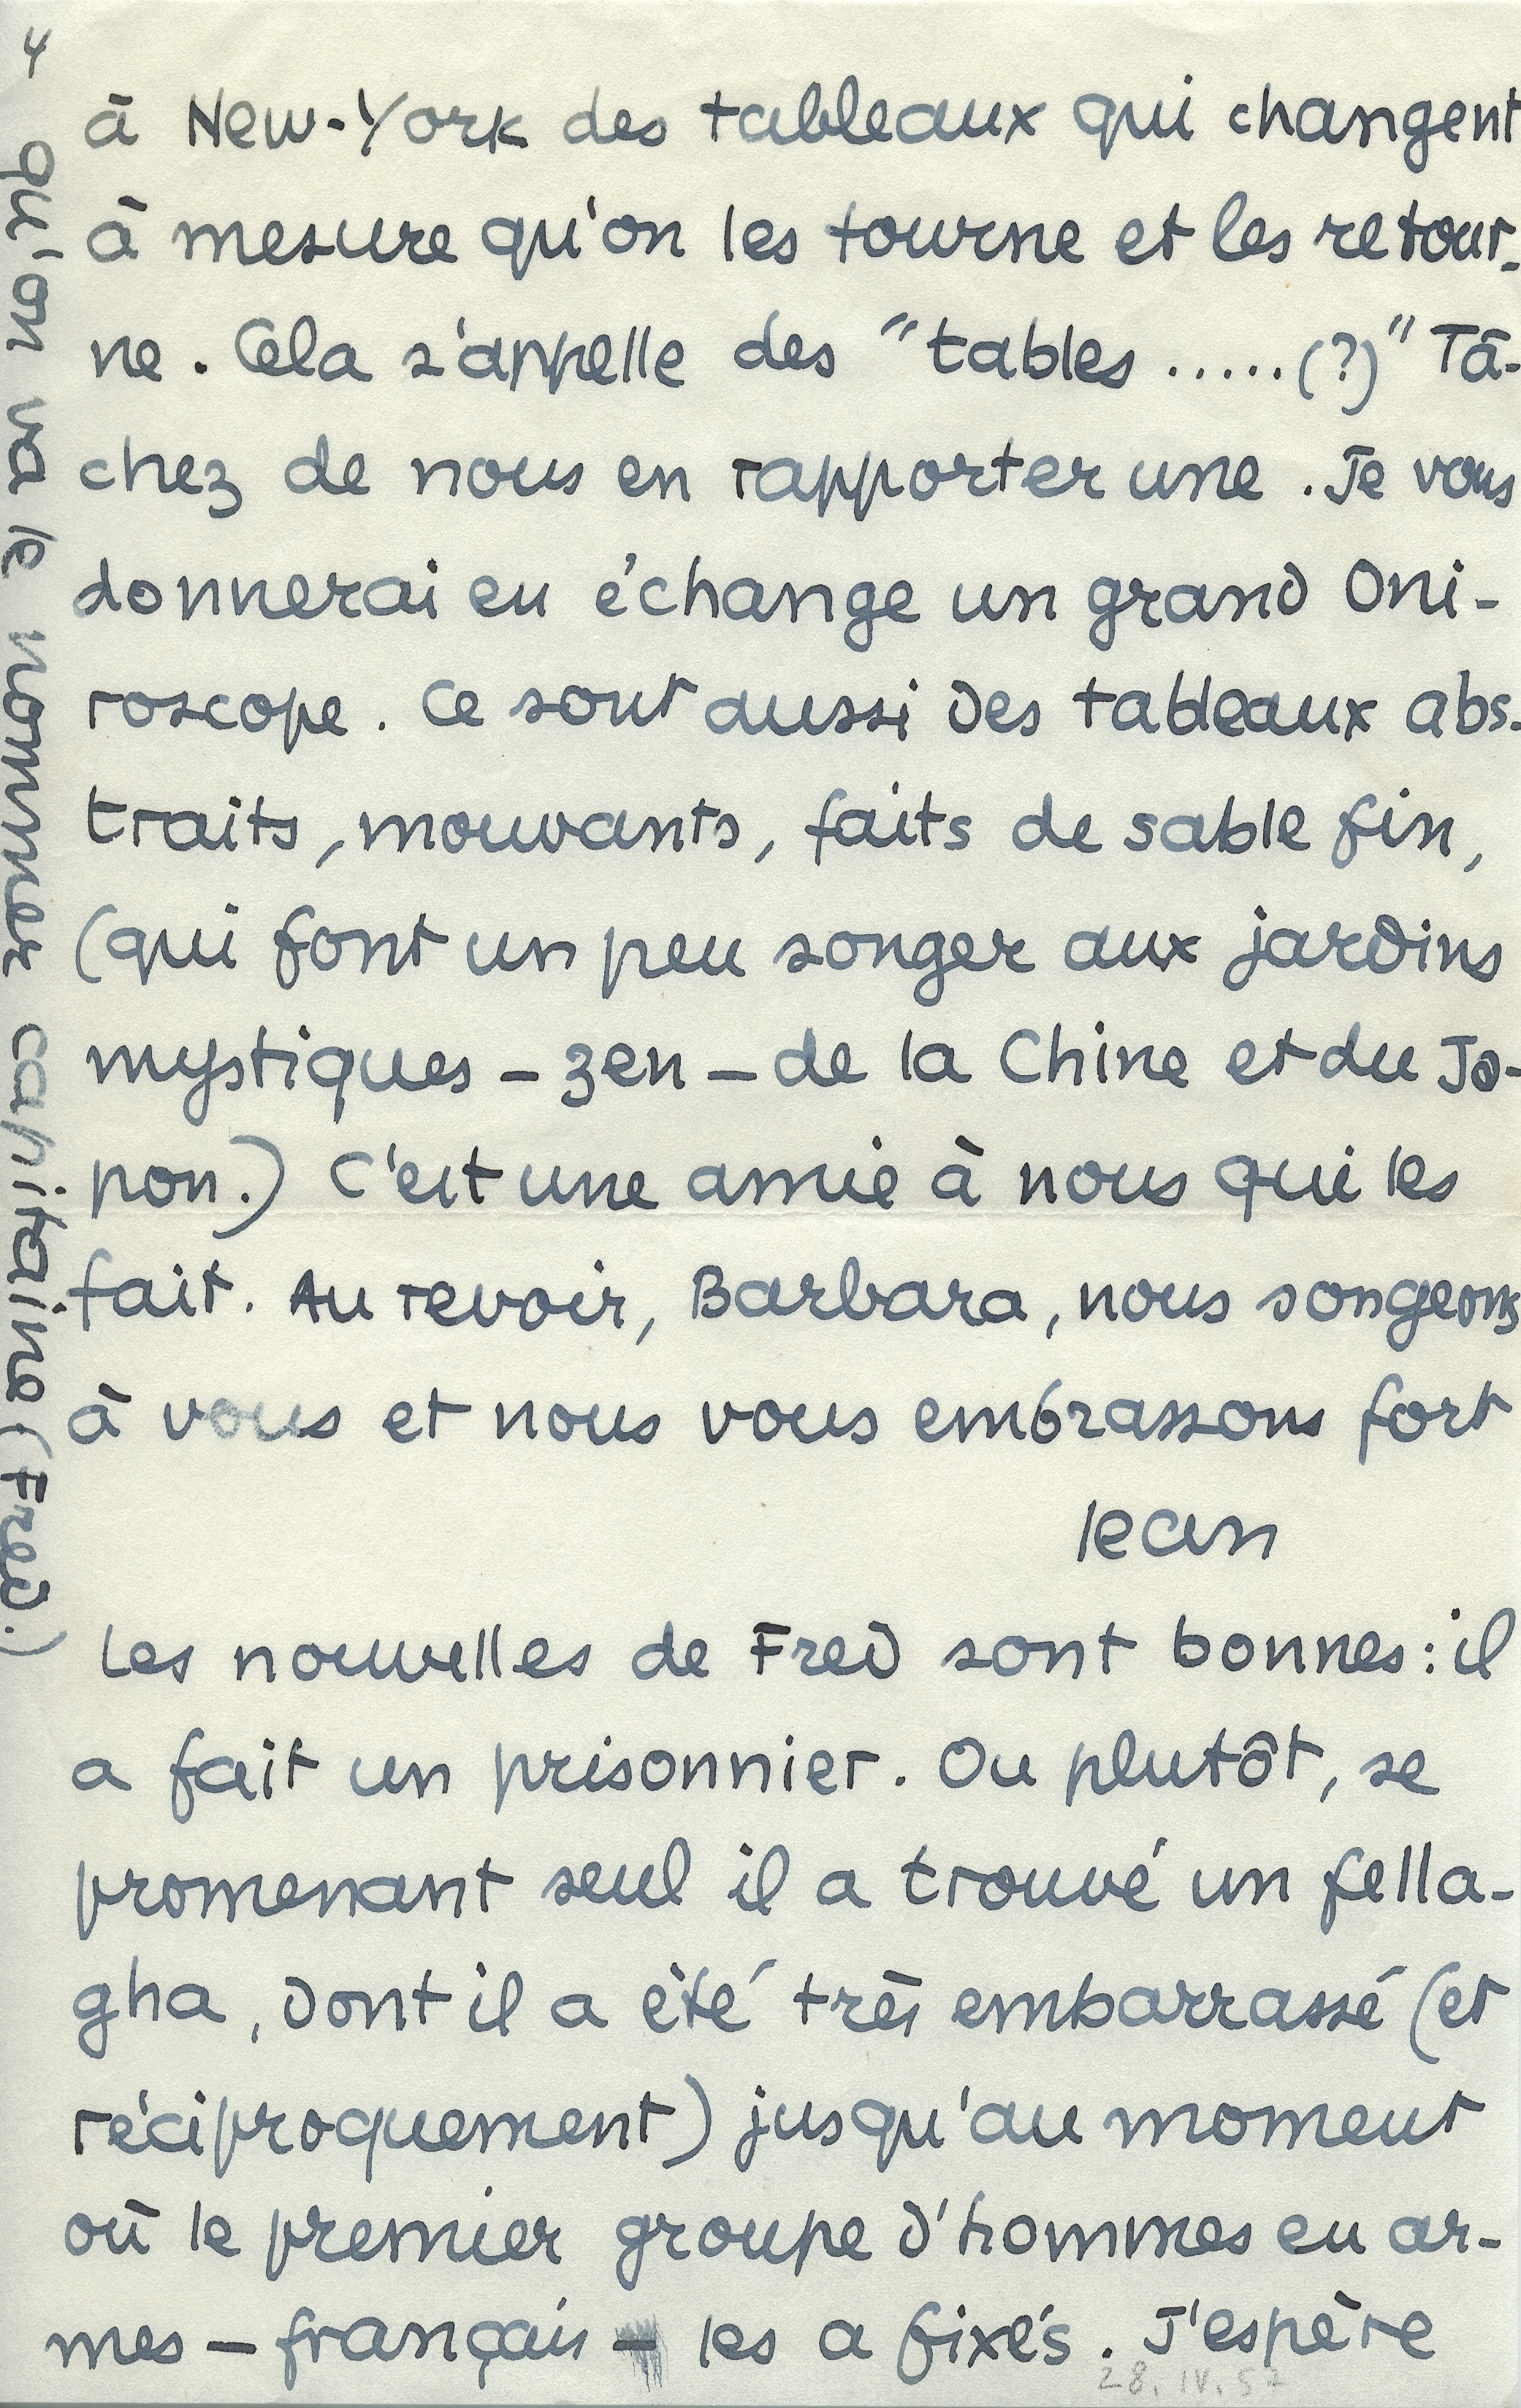 4
à New-York des tableaux qui changent
à mesure qu'on les tourne et les retour-
ne. Cela s'appelle des "tables .....(?)" Tâ-
chez de nous en rapporter une. Je vous
donnerai en échange un grand Oni-
roscope. Ce sont aussi des tableaux abs-
traits, mouvants, faits de sable fin,
(qui font un peu songer aux jardins
mystiques - zen - de la Chine et du Ja-
pon.) C'est une amie à nous qui les
fait. Au revoir, Barbara, nous songeons
à vous et nous vous embrassons fort
Jean
Les nouvelles de Fred sont bonnes : il
a fait un prisonnier. Ou plutôt, se
promenant seul il a trouvé un fella-
gha, dont il a été très embarrassé (et
réciproquement) jusqu'au moment
où le premier groupe d'hommes en ar-
mes - français - les a fixés. J'espère
qu'on va le nommer capitaine (Fred.)
28. IV. 57